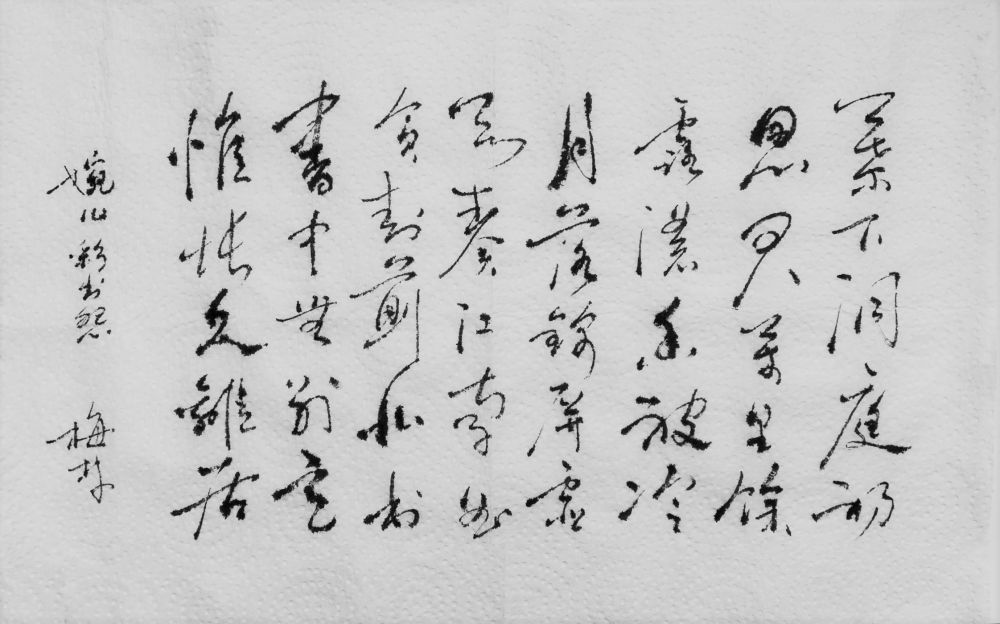 葉下洞庭初
思君萬里餘
露濃香被冷
月落錦屏虛
欲奏江南曲
貪封薊北书
書中無别意
惟悵久離居
婉儿彩书怨 梅村